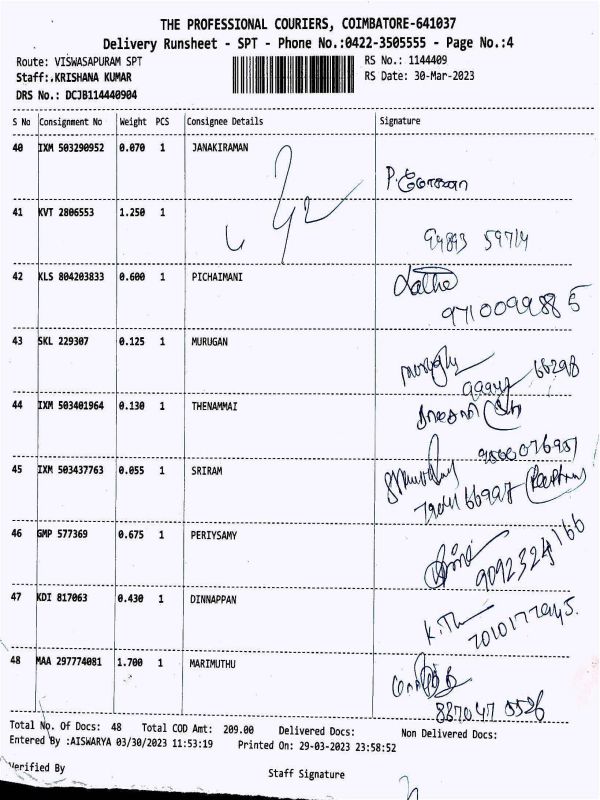 THE PROFESSIONAL COURIERS, COIMBATORE-641037
Delivery Runsheet - SPT - Phone No.:0422-3505555 - Page No.:4
Route: VISWASAPURAM SPT
RS No.: 1144409
Staff:.KRISHANA KUMAR
RS Date: 30-Mar-2023
DRS No.: DCJB114440904
S No Consignment No Weight PCS Consignee Details Signature
40 IXM 503290952 0.070 1 JANAKIRAMAN
41 KVT 2806553 1.250 1
59714
42 KLS 804203833 0.600 1 PICHAIMANI
Latha
9710099885
43 SKL 229307 0.125 1 MURUGAN
66298
44 IXM 503401964 0.130 1 THENAMMAI
45 IXM 503437763 0.055 1 SRIRAM
46 GMP 577369 0.675 1 PERIYSAMY
9092324166
47 KDI 817063 0.430 1 DINNAPPAN
48 MAA 297774081 1.700 1 MARIMUTHU
Total No. Of Docs: 48 Total COD Amt: 209.00 Delivered Docs: Non Delivered Docs:
Entered By :AISWARYA 03/30/2023 11:53:19 Printed On: 29-03-2023 23:58:52
Verified By
Staff Signature